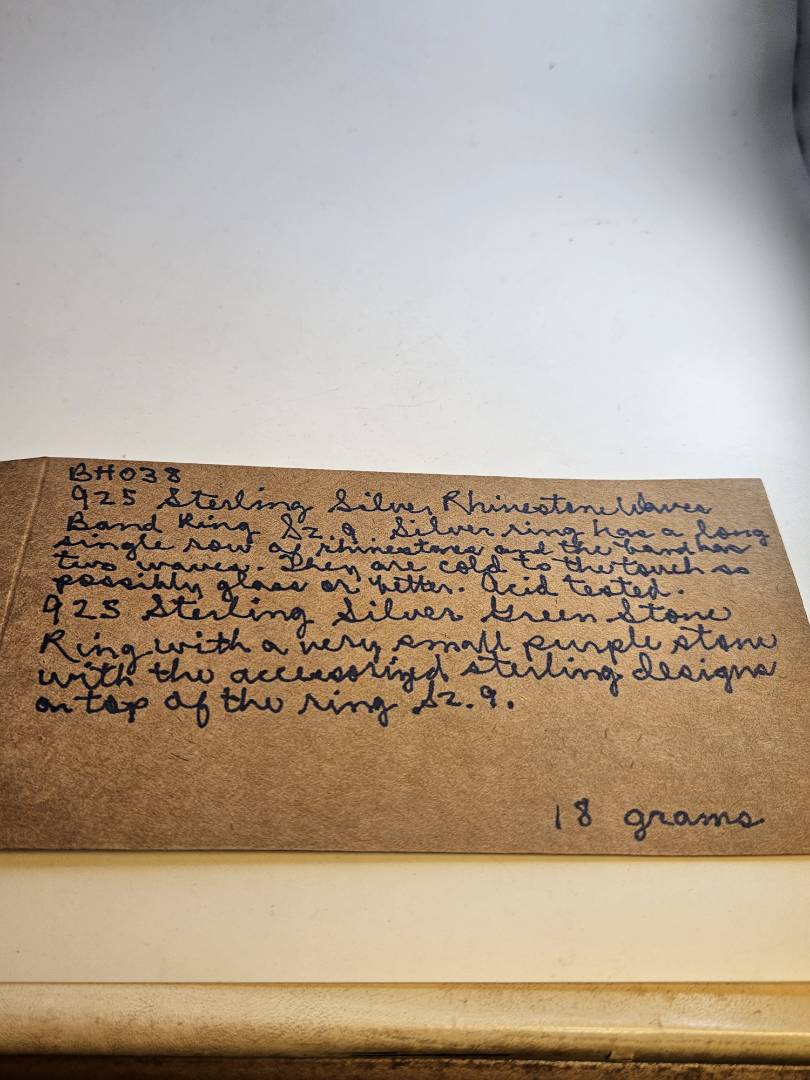 BH038
925 Sterling Silver Rhinestone Waves
Band Ring Sz 9 Silver ring has a long
single row of rhinestones and the band has
two waves. They are cold to the touch so
possibly glass or better. Acid tested.
925 Sterling Silver Green Stone
Ring with a very small purple stone
with the accessorized sterling designs
on top of the ring Sz. 9.
18 grams